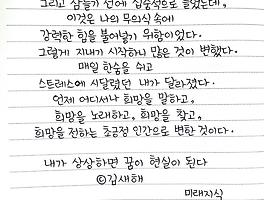 그리고 잠들기 전에 집중적으로 들었는데,
이것은 나의 무의식 속에
강력한 힘을 불어넣기 위함이었다.
그렇게 지내기 시작하자 많은 것이 변했다.
매일 한숨을 쉬고
스트레스에 시달렸던 내가 달라졌다.
언제 어디서나 희망을 말하고,
희망을 노래하고, 희망을 찾고,
희망을 전하는 초긍정 인간으로 변한 것이다.
내가 상상하면 꿈이 현실이 된다
©김새해
미래지식